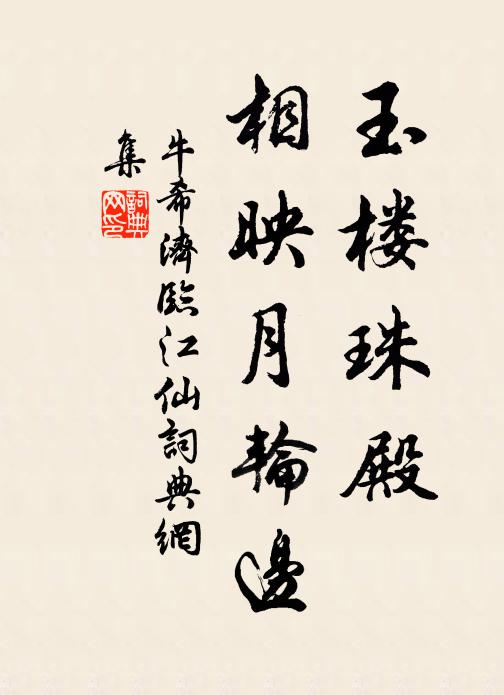 玉楼珠殿
相映月輪邊
牛希濟臨江仙詞典網
集
詞典
网印